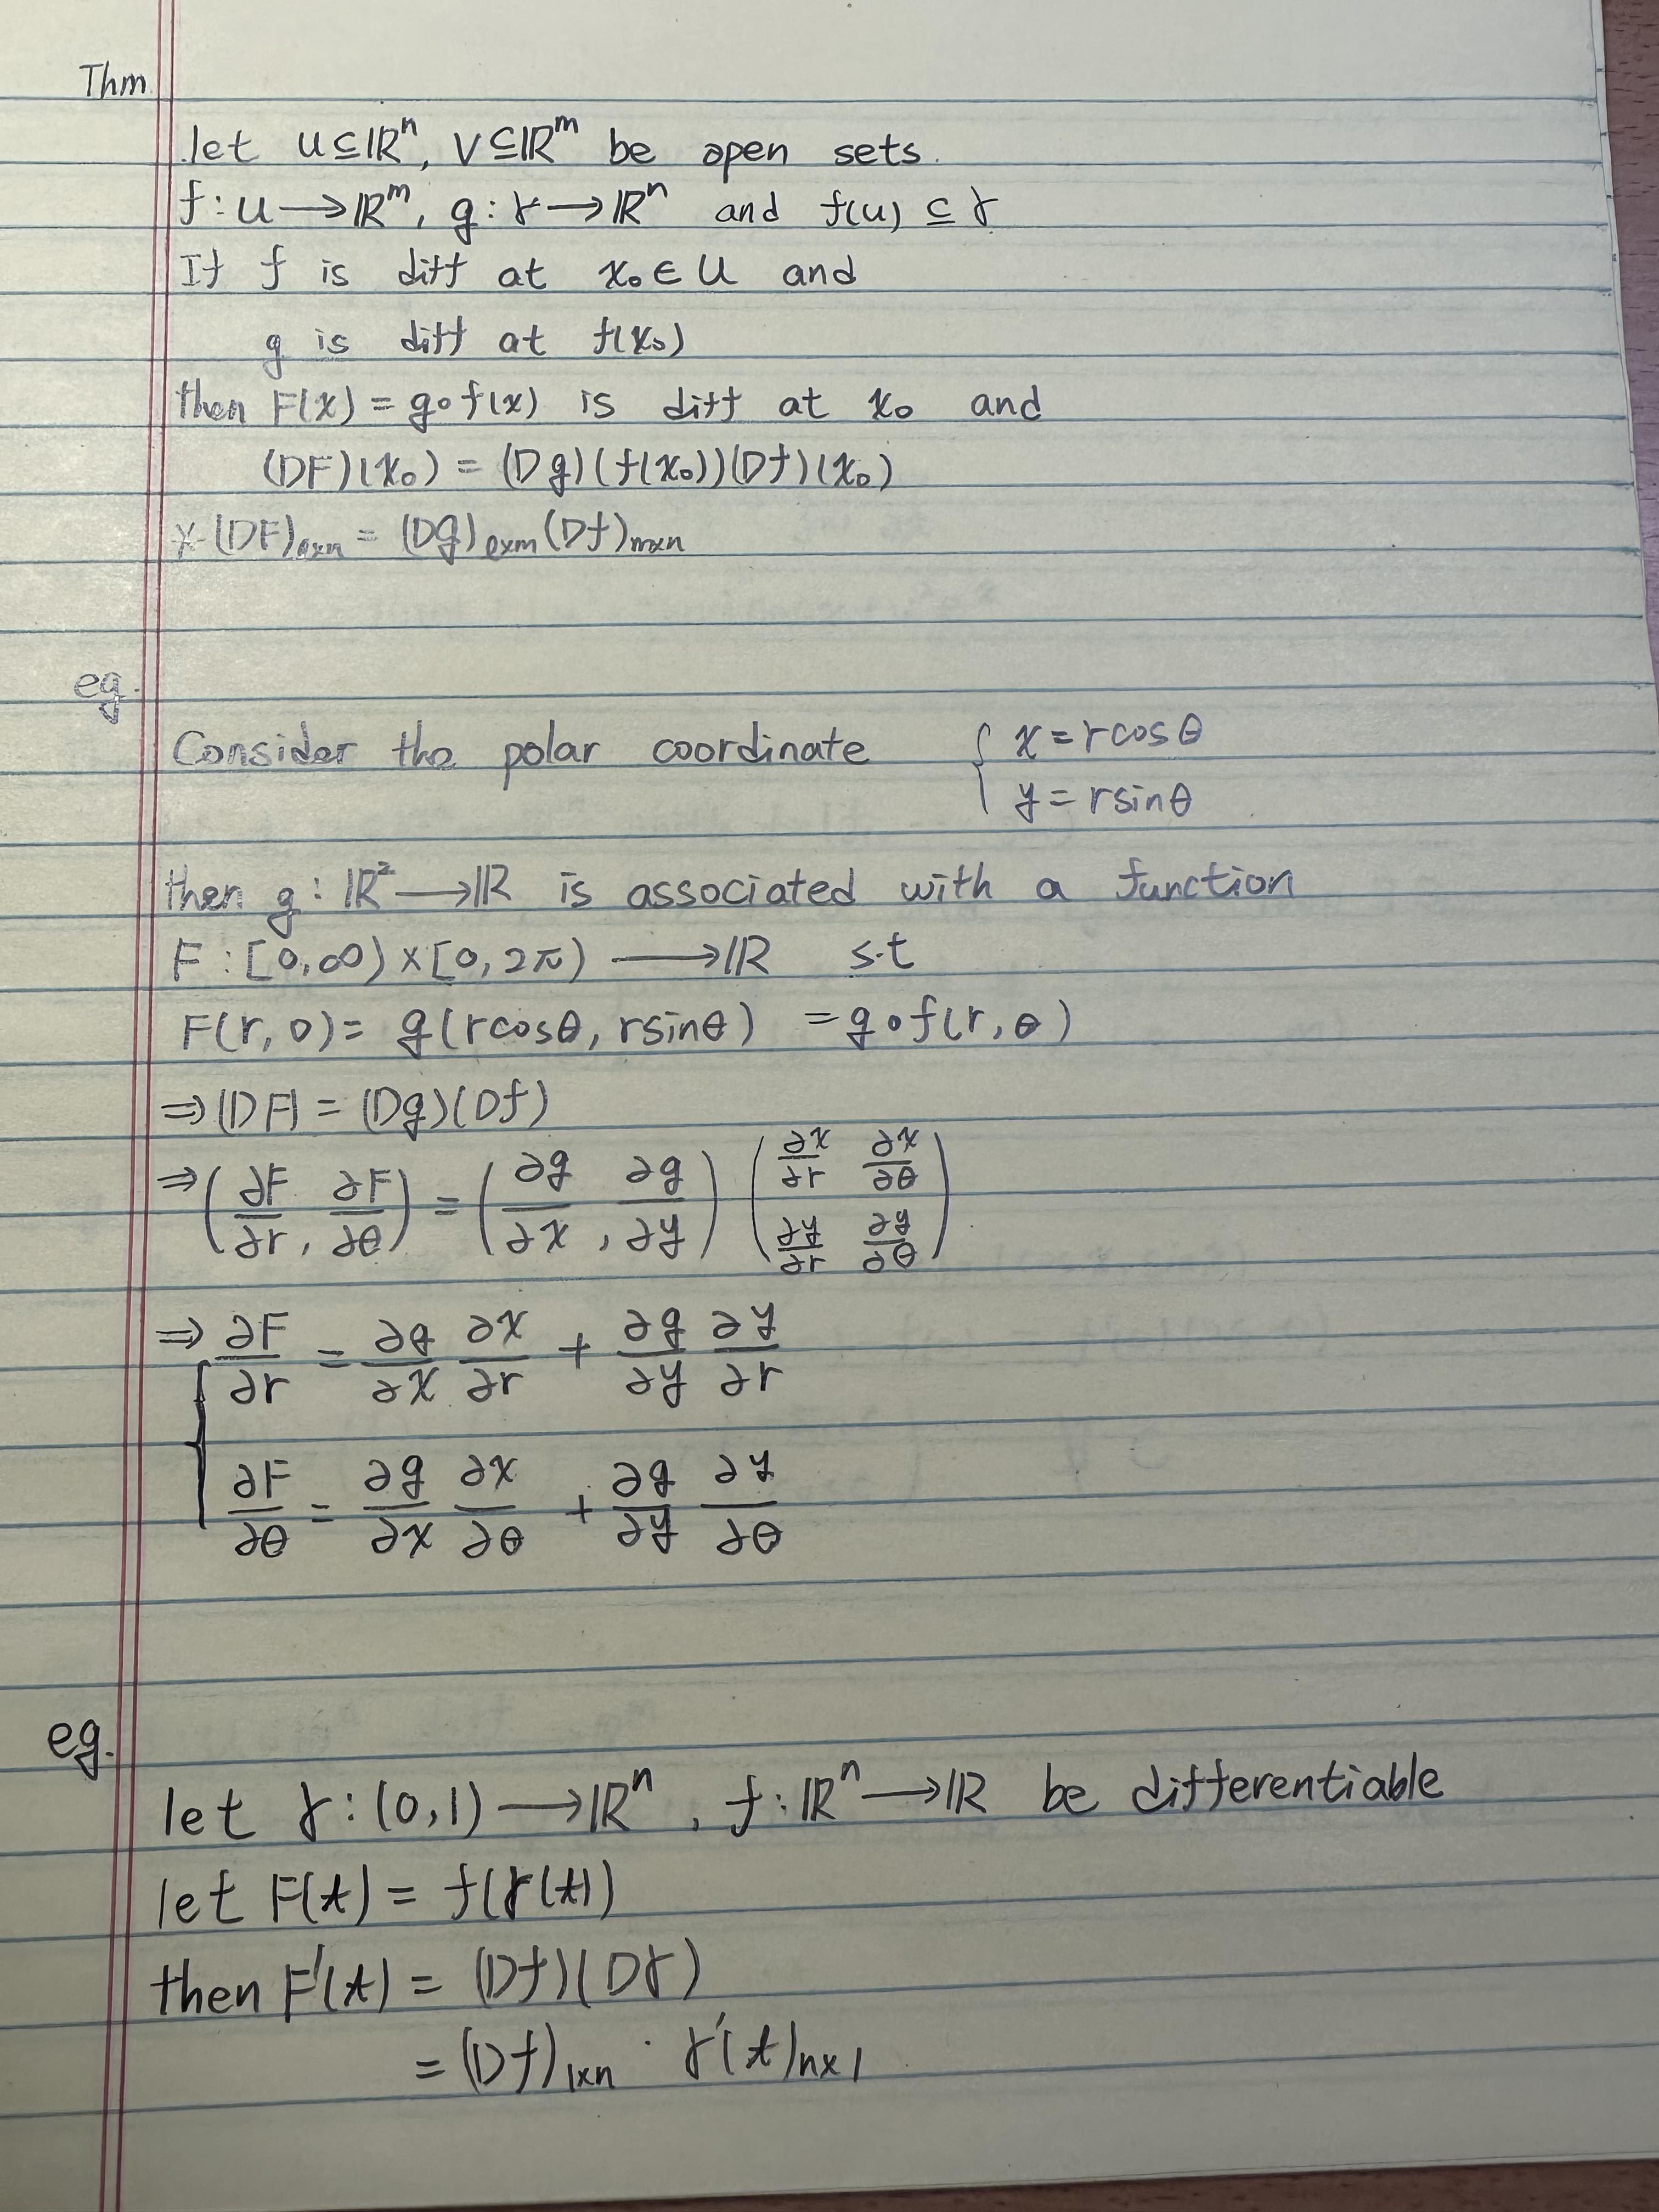 Thm.
let U⊆ℝⁿ, V⊆ℝᵐ be open sets.
f:U→ℝᵐ, g:γ→ℝⁿ and f(U)⊆γ
If f is diff at x₀∈U and
g is diff at f(x₀)
then F(x)=g∘f(x) is diff at x₀ and
(DF)(x₀)=(Dg)(f(x₀))(Df)(x₀)
(DF)ₗₓₙ=(Dg)ₗₓₘ(Df)ₘₓₙ
eg.
Consider the polar coordinate { x=rcosθ
y=rsinθ
then g:ℝ²→ℝ is associated with a function
F:[0,∞)×[0,2π)→ℝ s.t
F(r,0)=g(rcosθ,rsinθ) =g∘f(r,θ)
⇒(DF)=(Dg)(Df)
⇒(∂F/∂r, ∂F/∂θ)=(∂g/∂x, ∂g/∂y)(∂x/∂r ∂x/∂θ
∂y/∂r ∂y/∂θ)
⇒{ ∂F/∂r = ∂g/∂x ∂x/∂r + ∂g/∂y ∂y/∂r
∂F/∂θ = ∂g/∂x ∂x/∂θ + ∂g/∂y ∂y/∂θ
eg.
let γ:(0,1)→ℝⁿ, f:ℝⁿ→ℝ be differentiable
let F(t)=f(γ(t))
then F'(t)=(Df)(Dγ)
=(Df)₁ₓₙ · γ'(t)ₙₓ₁